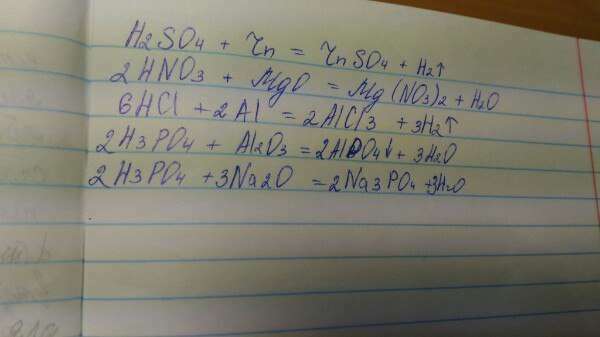 H2SO4 + Zn = ZnSO4 + H2↑
2HNO3 + MgO = Mg(NO3)2 + H2O
6HCl + 2Al = 2AlCl3 + 3H2↑
2H3PO4 + Al2O3 = 2AlPO4↓ + 3H2O
2H3PO4 + 3Na2O = 2Na3PO4 + 3H2O